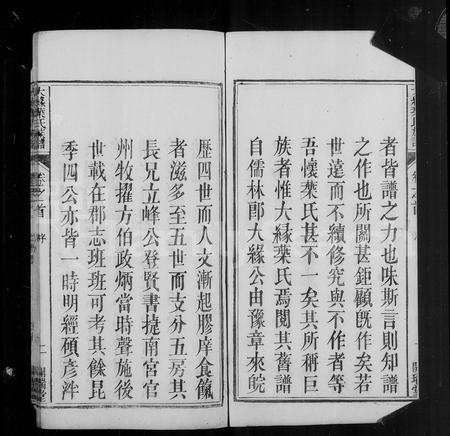 者皆譜之力也味斯言則知譜
之作也所關甚鉅顧旣作矣若
世遠而不續修究與不作者等
吾懷葉氏甚不一矣其所稱巨
族者惟大緣葉氏焉閱其舊譜
自儒林郎大緣公由豫章來皖
歷四世而人文漸起膠庠食餼
者滋多至五世而支分五房其
長兄立峰公登賢書捷南宮官
州牧擢方伯政炳當時聲施後
世載在郡志班班可考其餘昆
季四公亦皆一時明經碩彥泮
大緣葉氏族譜 卷之首 序